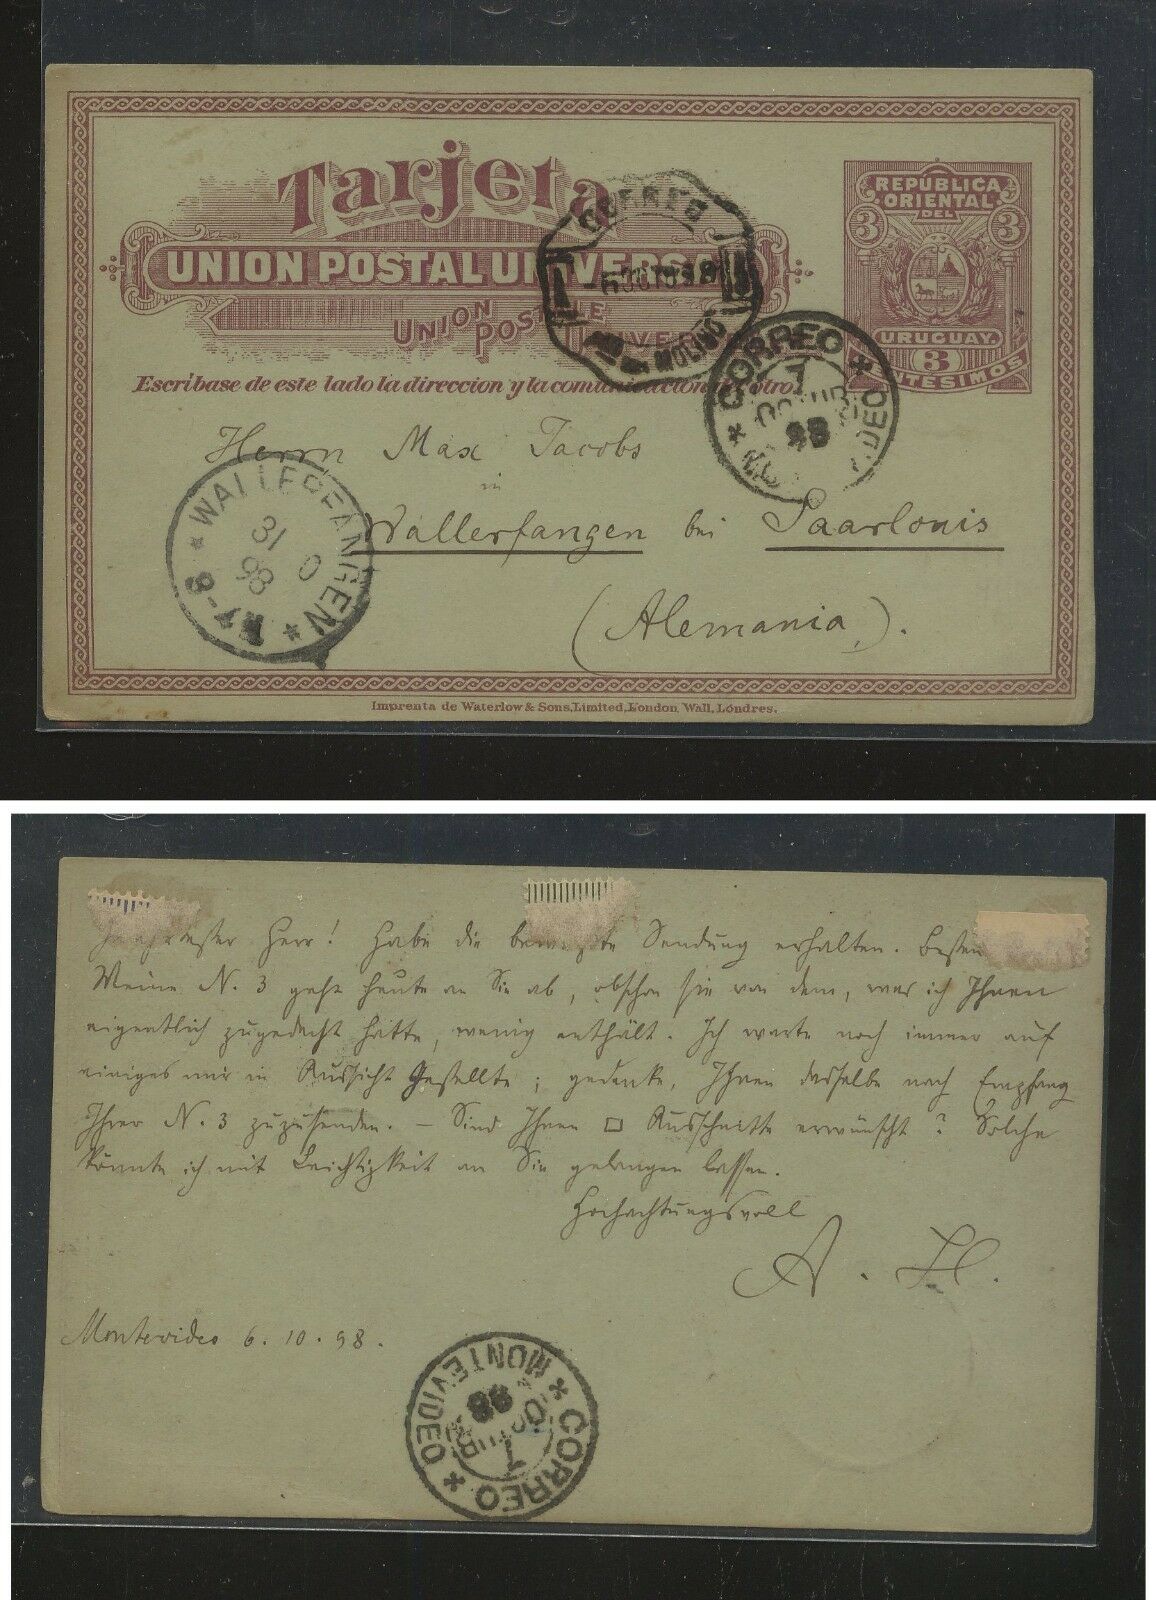 Tarjeta
UNION POSTAL UNIVERSAL
UNION
POSTALE
UNIVERSELLE
Escribase de este lado la direccion y la comunicacion del otro.
REPUBLICA
ORIENTAL
DEL
3 3
URUGUAY.
3
CENTESIMOS
CORREO
6 OCT 98
MOLINO
* CORREO * MONTEVIDEO
7
OCTUBRE
98
Herrn Max Jacobs
in
Wallerfangen bei Saarlouis
(Alemania).
* WALLERFANGEN *
31
10
98
8
Imprenta de Waterlow & Sons, Limited, London, Wall, Londres.
Herr! Habe die Sendung erhalten. Besten
Meine N. 3 geht heute an Sie ab, obschon sie von dem, was ich Ihnen
eigentlich zugedacht hatte, wenig enthält. Ich warte noch immer auf
einiges mir in Aussicht Gestellte; gedenke, Ihnen dasselbe nach Empfang
Ihrer N. 3 zuzusenden. – Sind Ihnen □ Ausschnitte erwünscht? Solche
könnte ich mit Leichtigkeit an Sie gelangen lassen.
Hochachtungsvoll
A. H.
Montevideo 6. 10. 98.
* CORREO * MONTEVIDEO
7
OCTUBRE
98